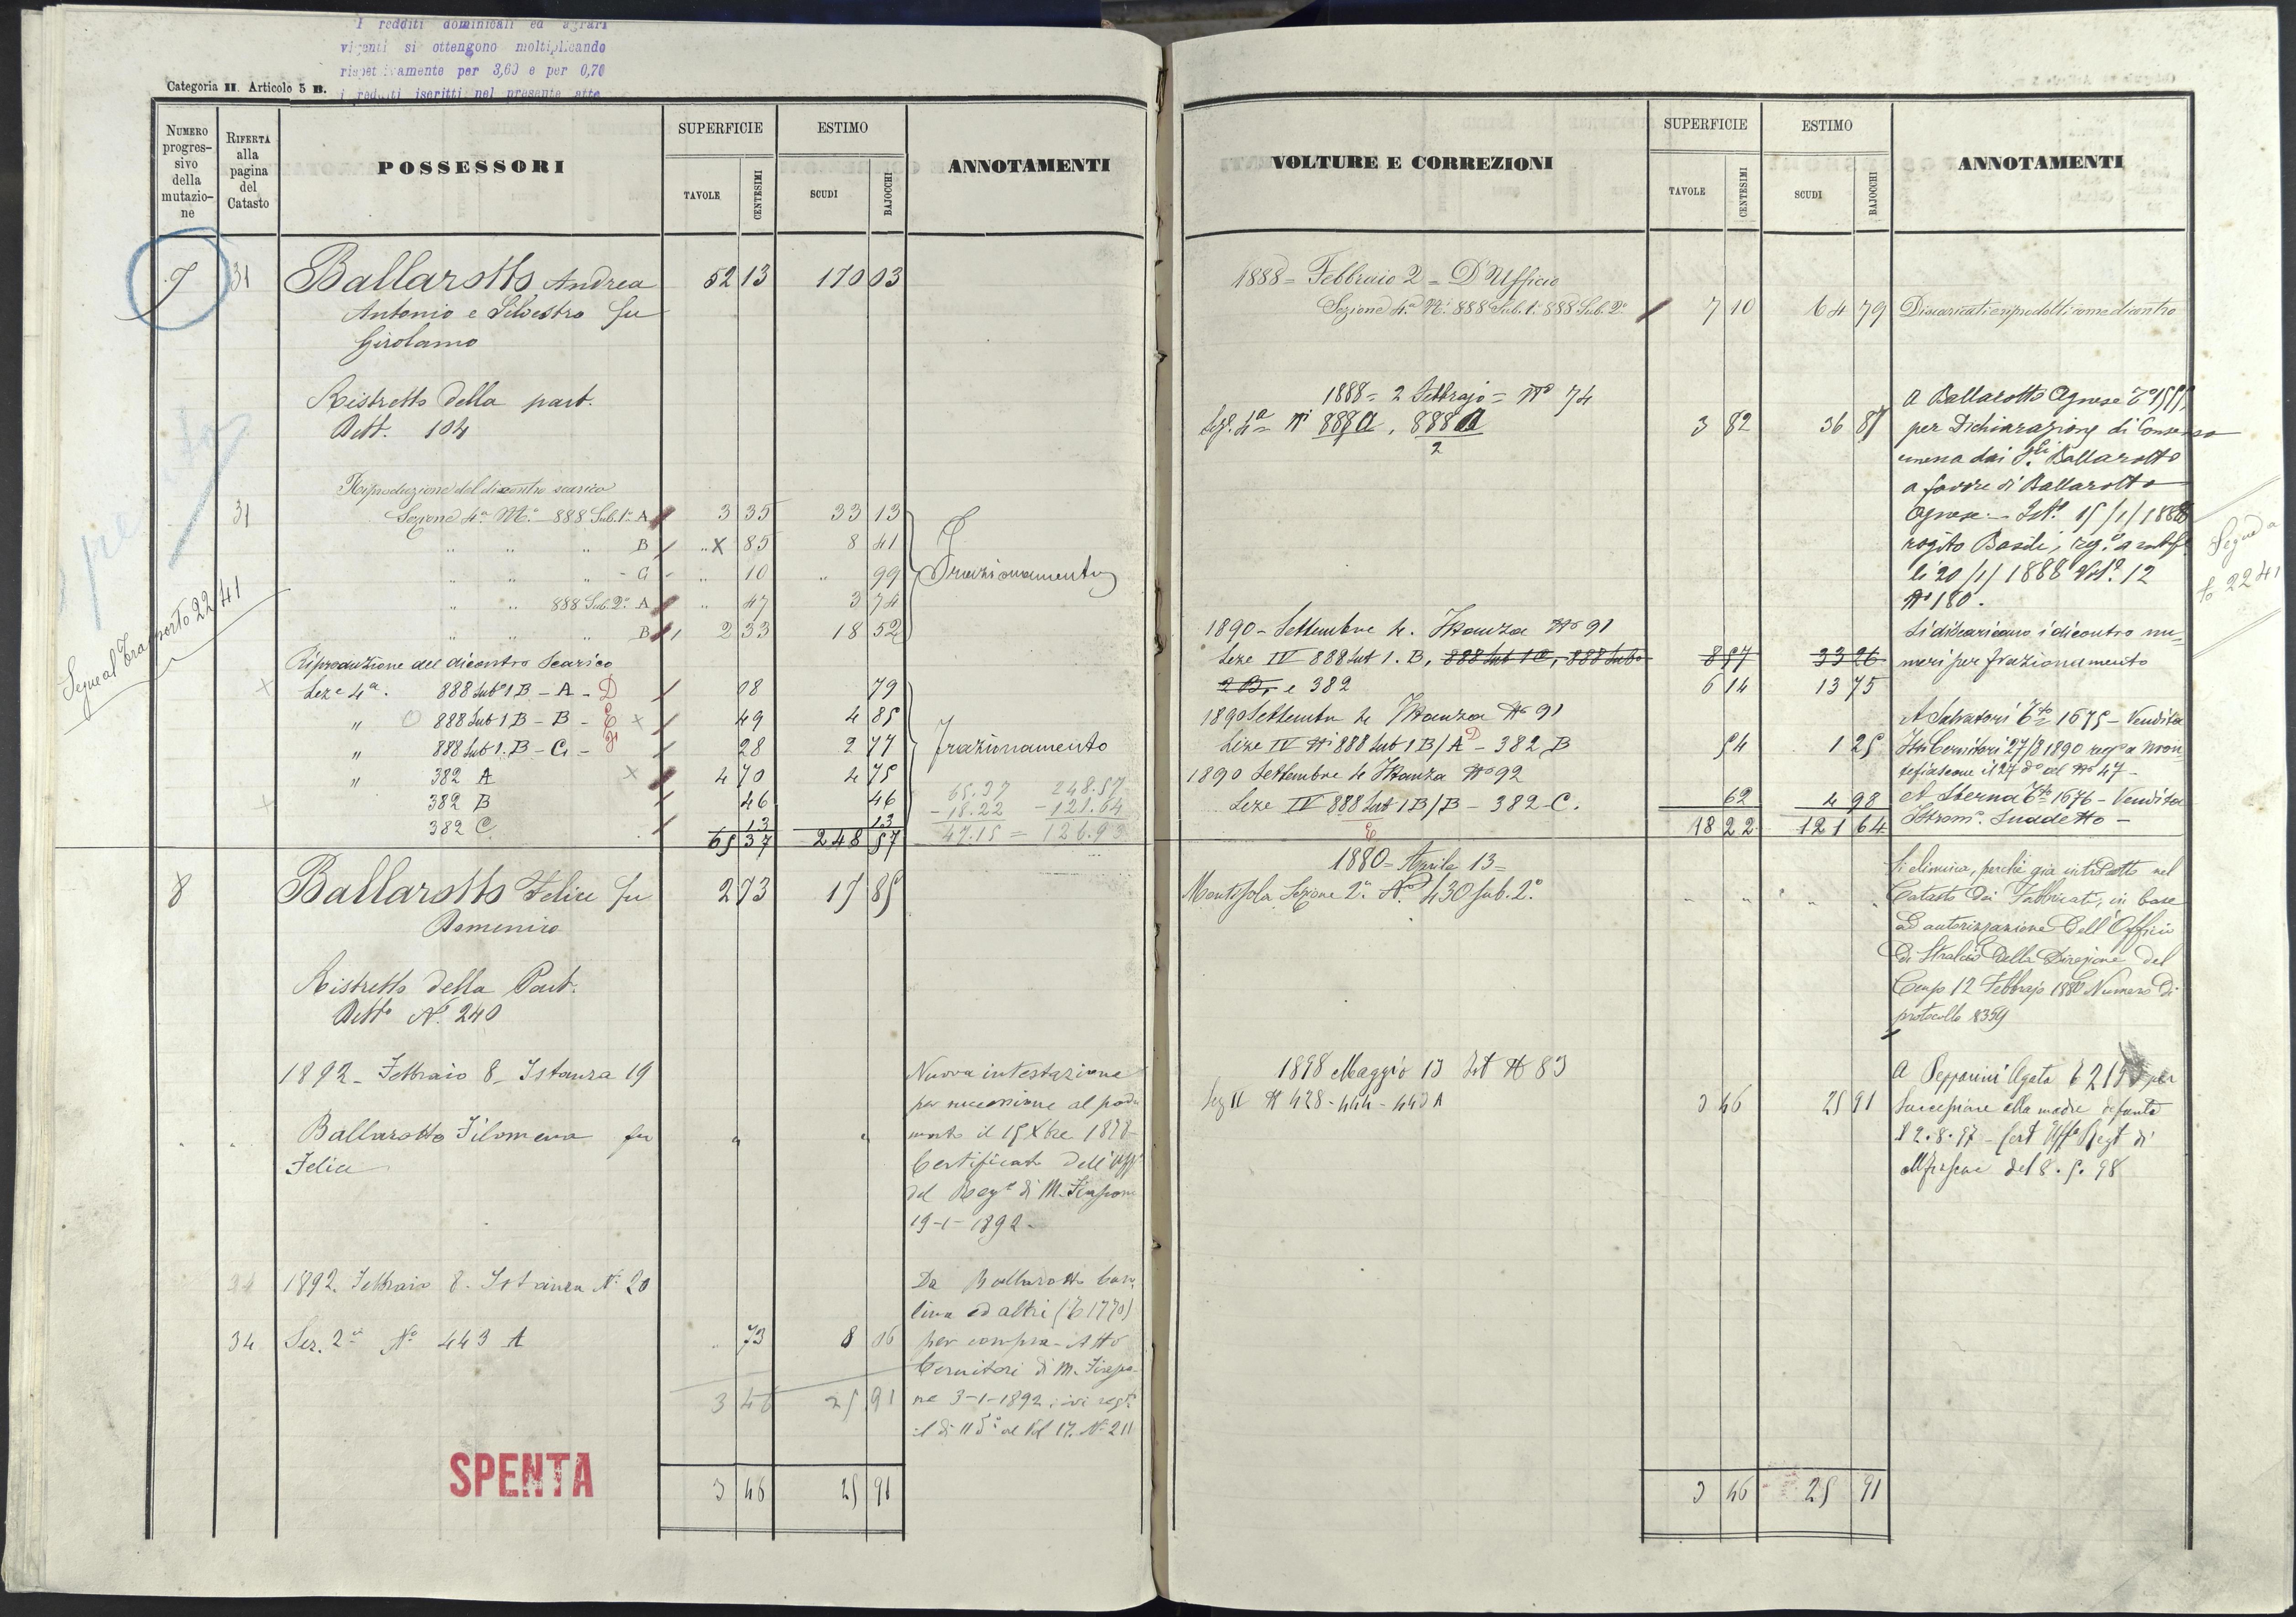 I redditi dominicali ed agrari
vigenti si ottengono moltiplicando
rispettivamente per 3,60 e per 0,70
i redditi iscritti nel presente atto
Categoria II. Articolo 5 B.
NUMERO progressivo della mutazione
RIFERTA alla pagina del Catasto
POSSESSORI
SUPERFICIE
TAVOLE
CENTESIMI
ESTIMO
SCUDI
BAJOCCHI
ANNOTAMENTI
7 31 Ballarotto Andrea 52 13 170 03
Antonio e Silvestro fu
Girolamo
Ristretto della part.
Dett. 104
Riproduzione del dicontro scarico
31 Sezione 4a No. 888 Sub. 1o A 3 35 33 13
" " " B " 85 8 41
" " " C " 10 " 99
Frazionamento
" " 888 Sub. 2o A " 47 3 74
" " " B 2 33 18 52
Segue al Trasporto 2241
Riproduzione del dicontro Scarico
Seze 4a. 888 Sub 1 B - A - D 08 79
" 888 Sub 1 B - B - E 49 4 85
" 888 Sub 1. B - C - 28 2 77
frazionamento
" 382 A 4 70 4 75
382 B 46 46
382 C 13 13
65 37 248 57
65.37 248.57
- 18.22 - 121.64
47.15 = 126.93
8 Ballarotto Felice fu 2 73 17 85
Domenico
Ristretto della Part.
Detto No. 240
1892 - Febbraio 8 - Istanza 19
Ballarotto Filomena fu
Felice
Nuova intestazione
per successione al padre
morto il 15 Xbre 1878
Certificato dell'Uff
del Rego di M. Fiascone
19-1-1892-
1892. Febbraio 8. Istanza No. 20
34 Sez. 2a No 443 A .. 73 8 06
3 46 25 91
Da Ballarotto
ed altri (To 1770)
per compra - Atto
Cernitori di M. Fiasco-
ne 3-1-1892, ivi regto
il di 11 do al Vol 17. No 211
SPENTA
3 46 25 91
VOLTURE E CORREZIONI
SUPERFICIE
TAVOLE
CENTESIMI
ESTIMO
SCUDI
BAJOCCHI
ANNOTAMENTI
1888 = Febbraio 2 = D'Ufficio
Sezione 4a Ni. 888 Sub. 1o 888 Sub. 2o 7 10 64 79 Discaricati e riprodotti come dicontro
1888 = 2 Febbrajo = No 74
Sez. 4a Ni 888 A, 888 A 3 82 36 87
2
A Ballarotto Agnese
per Dichiarazione di Consenso
emessa dai Ballarotto
a favore di Ballarotto
Agnese - Ist. 15/1/1888
rogito Basili, rego a
li 20/1/1888 Vol. 12
No 180.
Segue a
to 2241
1890 - Settembre 4. Istanza No 91
Seze IV 888 Sub 1. B, 888 Sub 1 C, 888 Sub 8 57 33 26
2 B, e 382 6 14 13 75
Si discaricano i dicontro nu-
meri per frazionamento
1890 Settembre 4 Istanza No 91
Seze IV Ni 888 Sub 1 B/A D - 382 B 54 1 25
A Salvatori To 1675 - Vendita
Cernitori 27/8 1890 rego a Mon-
tefiascone il 27 do al No 47 -
1890 Settembre 4 Istanza No 92
Seze IV 888 Sub 1 B/B - 382 C. 62 4 98
E
A Sterna To 1676 - Vendita
Istrom. Suddetto -
18 22 121 64
1880 = Aprile 13 =
Sezione 2a. No. 430 sub. 2o. " " " "
Si elimina, perchè già introdotto nel
Catasto dei Fabbricati, in base
ad autorizzazione dell'Officio
di Stralcio della Direzione del
Censo 12 Febbrajo 1880 Numero di
protocollo 8359
1898 Maggio 13 Ist No 83
Sez II No 428 - 444 - 443 A 3 46 25 91
A Agata
Successione alla madre defunta
2.8.97 - Cert Uffo Regt di
del 8.5.98
3 46 25 91